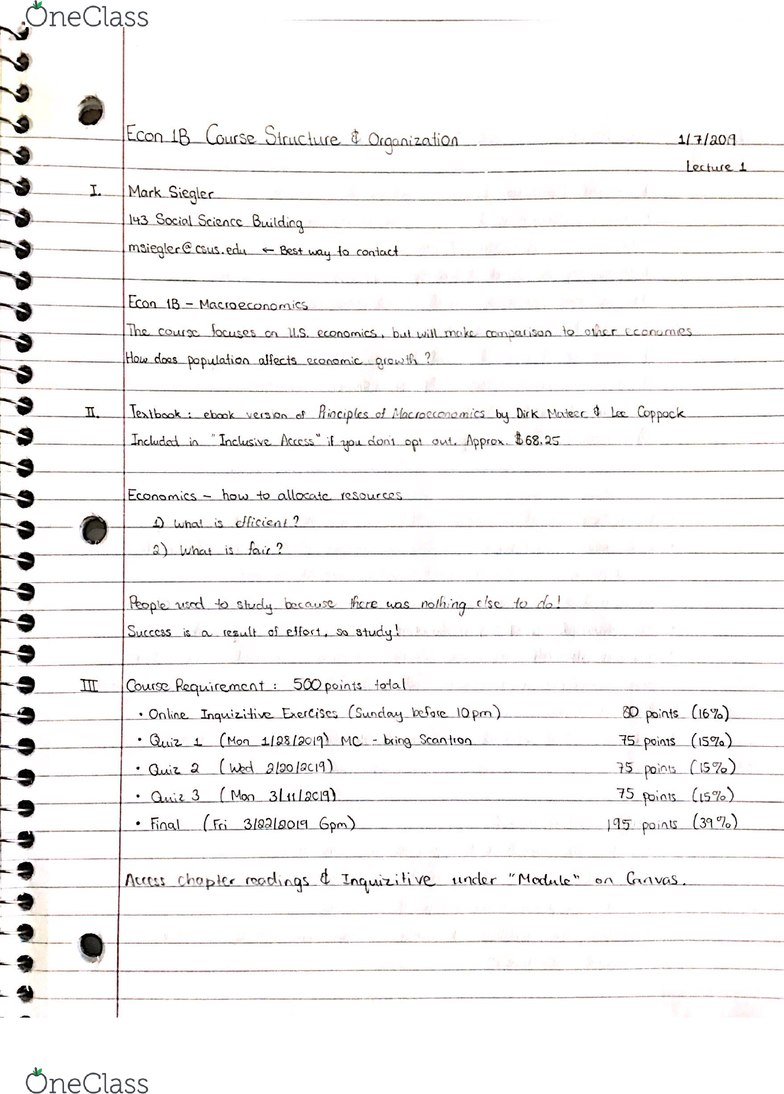 OneClass
Econ 1B Course Structure & Organization
1/7/2019
Lecture 1
I. Mark Siegler
143 Social Science Building
msiegler@csus.edu ← Best way to contact
Econ 1B - Macroeconomics
The course focuses on U.S. economics, but will make comparison to other economies
How does population affects economic growth?
II. Textbook: ebook version of Principles of Macroeconomics by Dirk Mateer & Lee Coppock
Included in "Inclusive Access" if you don't opt out. Approx. $68.25
Economics - how to allocate resources
1) What is efficient?
2) What is fair?
People used to study because there was nothing else to do!
Success is a result of effort, so study!
III Course Requirement: 500 points total
• Online Inquizitive Exercises (Sunday before 10pm) 80 points (16%)
• Quiz 1 (Mon 1/28/2019) MC - bring Scantron 75 points (15%)
• Quiz 2 (Wed 2/20/2019) 75 points (15%)
• Quiz 3 (Mon 3/11/2019) 75 points (15%)
• Final (Fri 3/22/2019 6pm) 195 points (39%)
Access chapter readings & Inquizitive under "Module" on Canvas.
OneClass